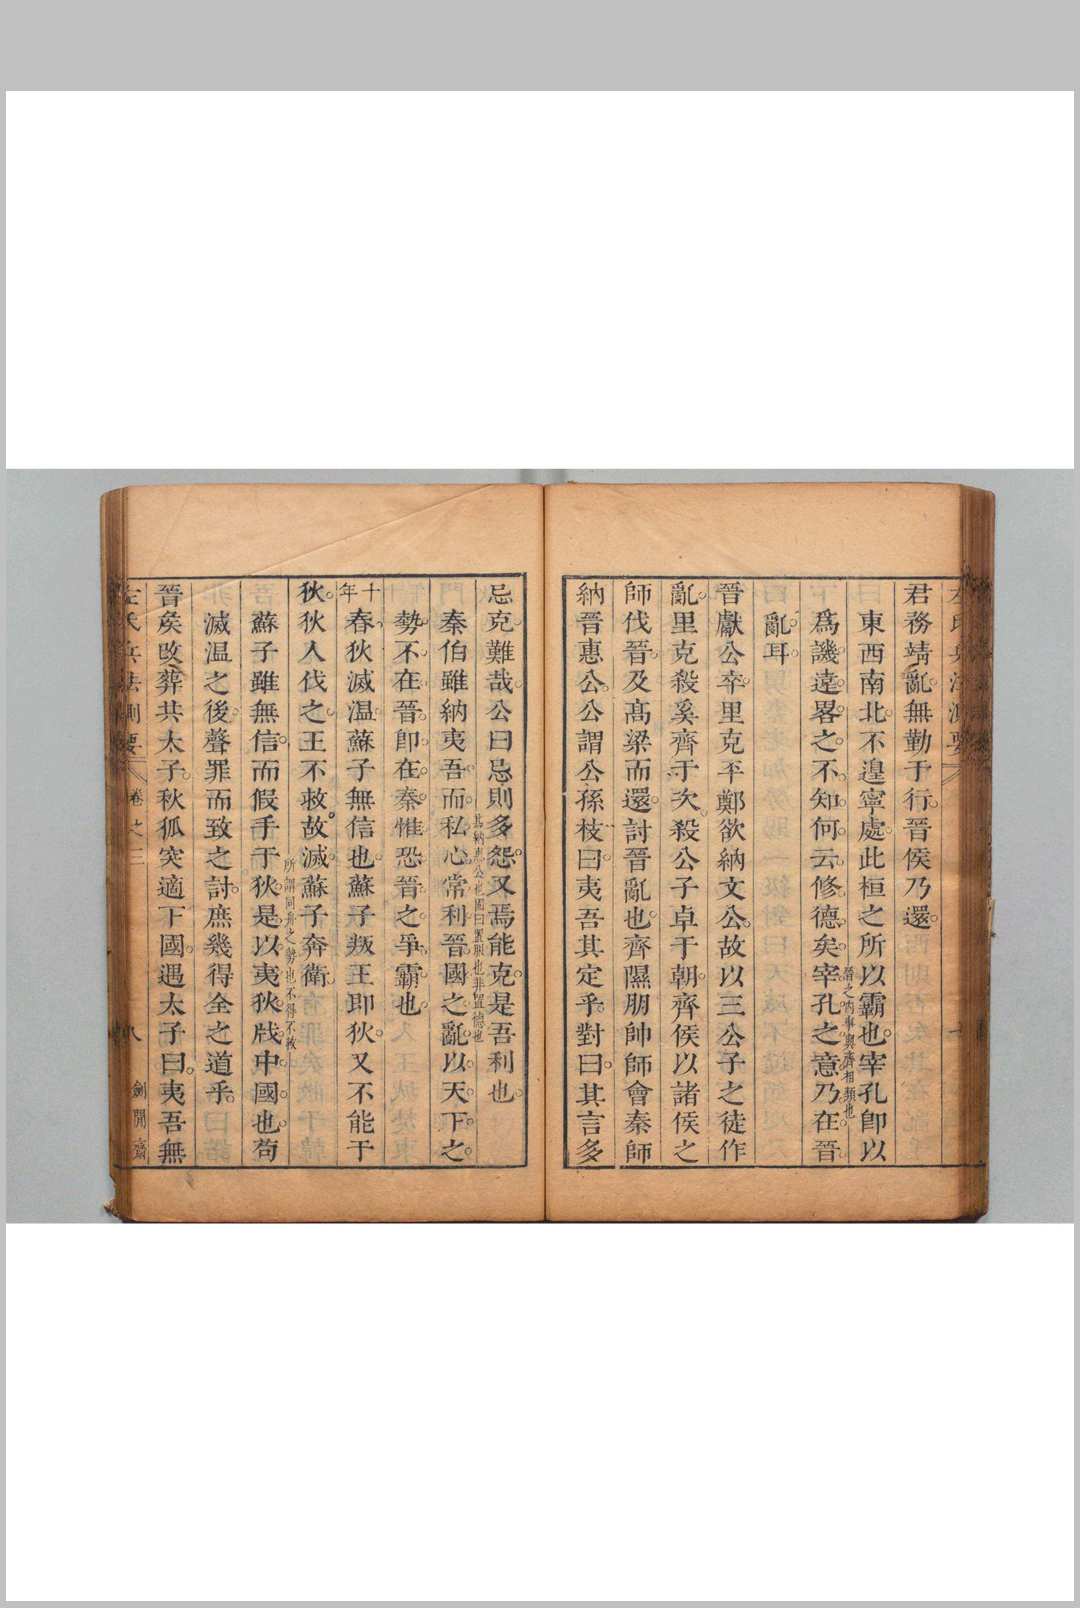 君務靖亂無勤于行晉侯乃還
東西南北不遑寧處此桓之所以霸也宰孔卽以
晉之內事與齊相類也
爲譏遠畧之不知何云修德矣宰孔之意乃在晉
亂耳
晉獻公卒里克丕鄭欲納文公故以三公子之徒作
亂里克殺奚齊于次殺公子卓于朝齊侯以諸侯之
師伐晉及髙梁而還討晉亂也齊隰朋帥師會秦師
納晉惠公公謂公孫枝曰夷吾其定乎對曰其言多
忌克難哉公曰忌則多怨又焉能克是吾利也
秦伯雖納夷吾而私心常利晉國之亂以天下之
勢不在晉卽在秦惟恐晉之爭霸也
十年
春狄滅温蘇子無信也蘇子叛王即狄又不能于
狄狄人伐之王不救故滅蘇子奔衛
所謂同舟之勢也不得不救
蘇子雖無信而假手于狄是以夷狄戕中國也苟
滅温之後聲罪而致之討庶幾得全之道乎
晉矦改葬共太子秋狐突適下國遇太子曰夷吾無
左氏兵法測要
卷之三
八
劍閒齋